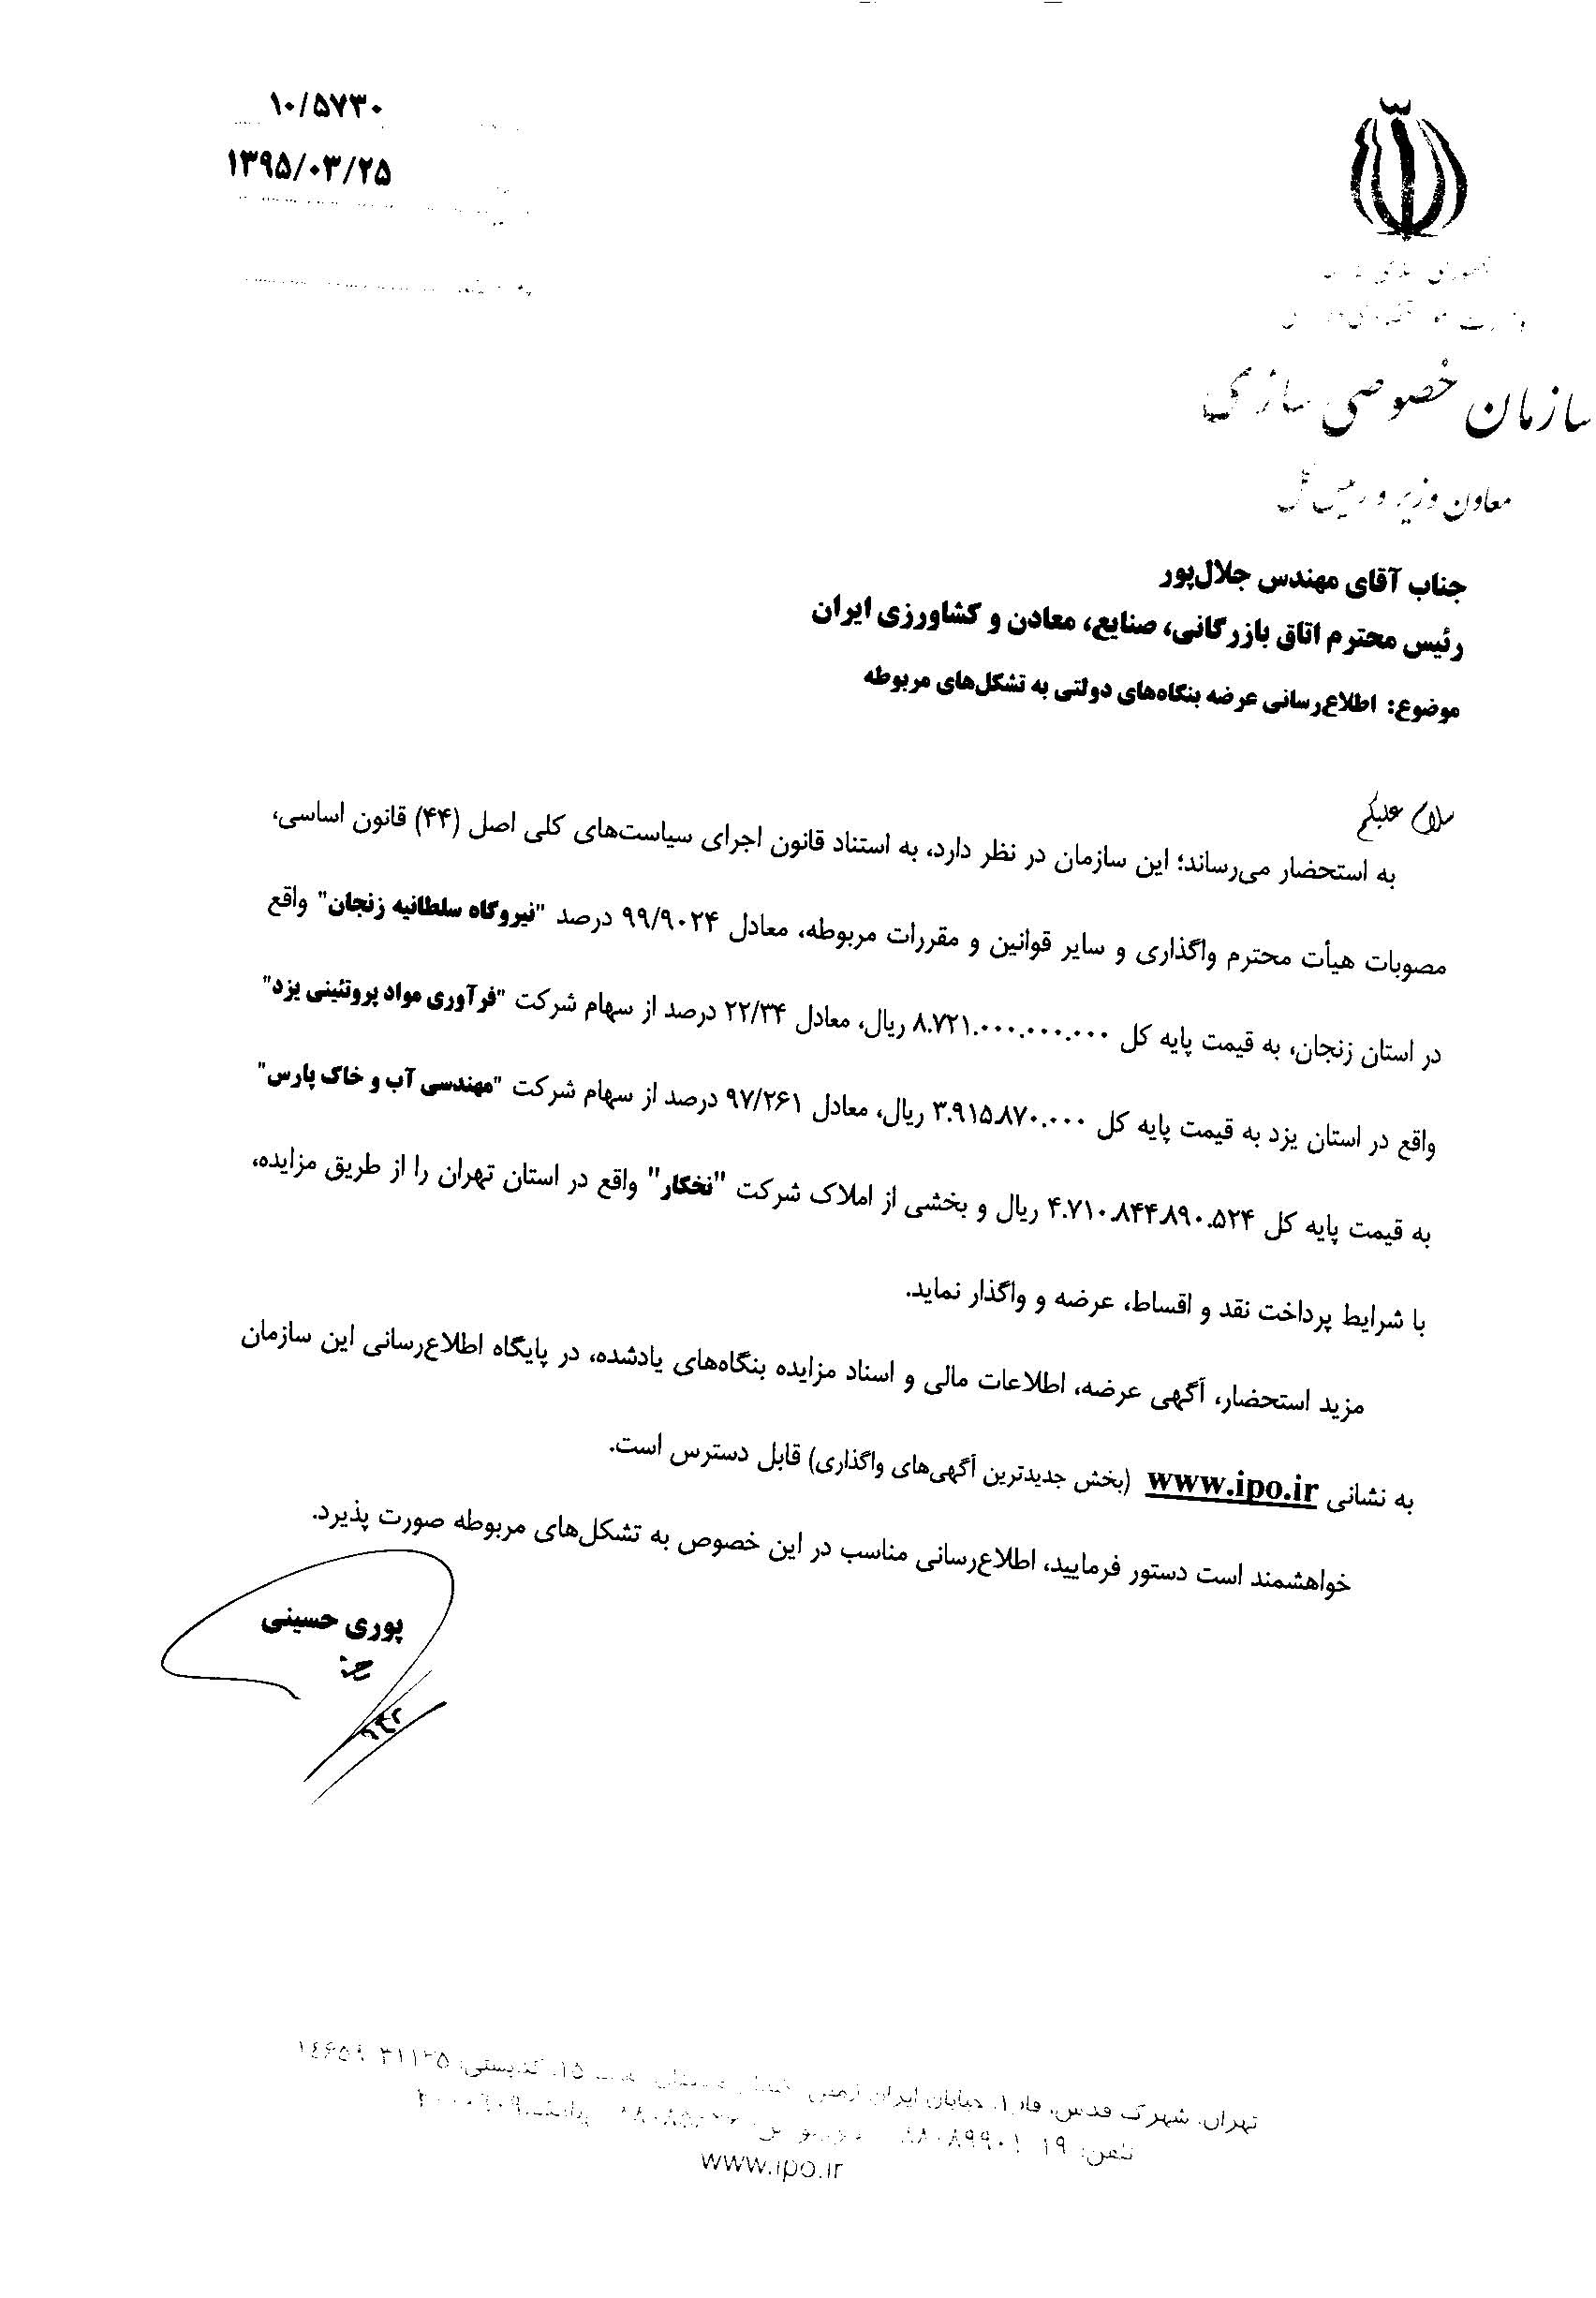 ۱۰/۵۷۳۰
۱۳۹۵/۰۳/۲۵
سازمان خصوصی سازی
معاون وزیر و رییس کل
جناب آقای مهندس جلال‌پور
رئیس محترم اتاق بازرگانی، صنایع، معادن و کشاورزی ایران
موضوع: اطلاع‌رسانی عرضه بنگاه‌های دولتی به تشکل‌های مربوطه
سلام علیکم
به استحضار می‌رساند؛ این سازمان در نظر دارد، به استناد قانون اجرای سیاست‌های کلی اصل (۴۴) قانون اساسی،
مصوبات هیأت محترم واگذاری و سایر قوانین و مقررات مربوطه، معادل ۹۹/۹۰۲۴ درصد "نیروگاه سلطانیه زنجان" واقع
در استان زنجان، به قیمت پایه کل ۸.۷۲۱.۰۰۰.۰۰۰.۰۰۰ ریال، معادل ۲۲/۳۴ درصد از سهام شرکت "فرآوری مواد پروتئینی یزد"
واقع در استان یزد به قیمت پایه کل ۳.۹۱۵.۸۷۰.۰۰۰ ریال، معادل ۹۷/۲۶۱ درصد از سهام شرکت "مهندسی آب و خاک پارس"
به قیمت پایه کل ۴.۷۱۰.۸۴۴.۸۹۰.۵۲۴ ریال و بخشی از املاک شرکت "نخکار" واقع در استان تهران را از طریق مزایده،
با شرایط پرداخت نقد و اقساط، عرضه و واگذار نماید.
مزید استحضار، آگهی عرضه، اطلاعات مالی و اسناد مزایده بنگاه‌های یادشده، در پایگاه اطلاع‌رسانی این سازمان
به نشانی www.ipo.ir (بخش جدیدترین آگهی‌های واگذاری) قابل دسترس است.
خواهشمند است دستور فرمایید، اطلاع‌رسانی مناسب در این خصوص به تشکل‌های مربوطه صورت پذیرد.
پوری حسینی
تهران، شهرک قدس، خیابان ایران زمین، ۱۵، کدپستی:
تلفن:
www.ipo.ir